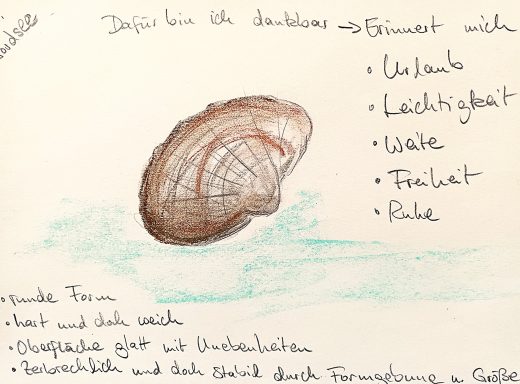 Nordsee
Dafür bin ich dankbar → Erinnert mich
• Urlaub
• Leichtigkeit
• Weite
• Freiheit
• Ruhe
• runde Form
• hart und doch weich
• Oberfläche glatt mit Unebenheiten
• Zerbrechlich und doch stabil durch Formgebung u. Größe